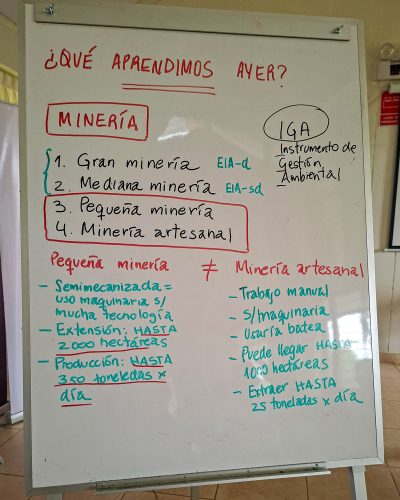 ¿QUÉ APRENDIMOS AYER?
MINERÍA
IGA
Instrumento de
Gestión
Ambiental
1. Gran minería EIA-d
2. Mediana minería EIA-sd
3. Pequeña minería
4. Minería artesanal
Pequeña minería ≠ Minería artesanal
- Semimecanizada =
uso maquinaria s/
mucha tecnología
- Extensión: HASTA
2000 hectáreas
- Producción: HASTA
350 toneledas x
día
- Trabajo manual
- s/maquinaria
- Usaría batea
- Puede llegar HASTA
1000 hectáreas
- Extraer HASTA
25 toneladas x día